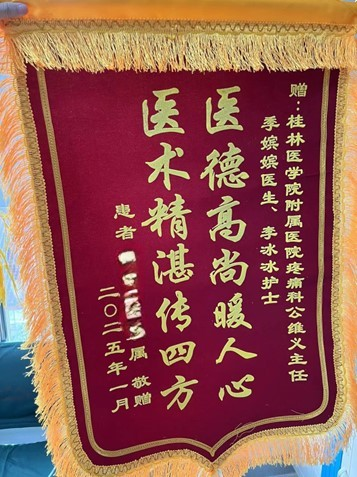 赠：桂林医学院附属医院疼痛科公维义主任
季嫔嫔医生、李冰冰护士
医德高尚暖人心
医术精湛传四方
患者 属 敬赠
二〇二五年一月